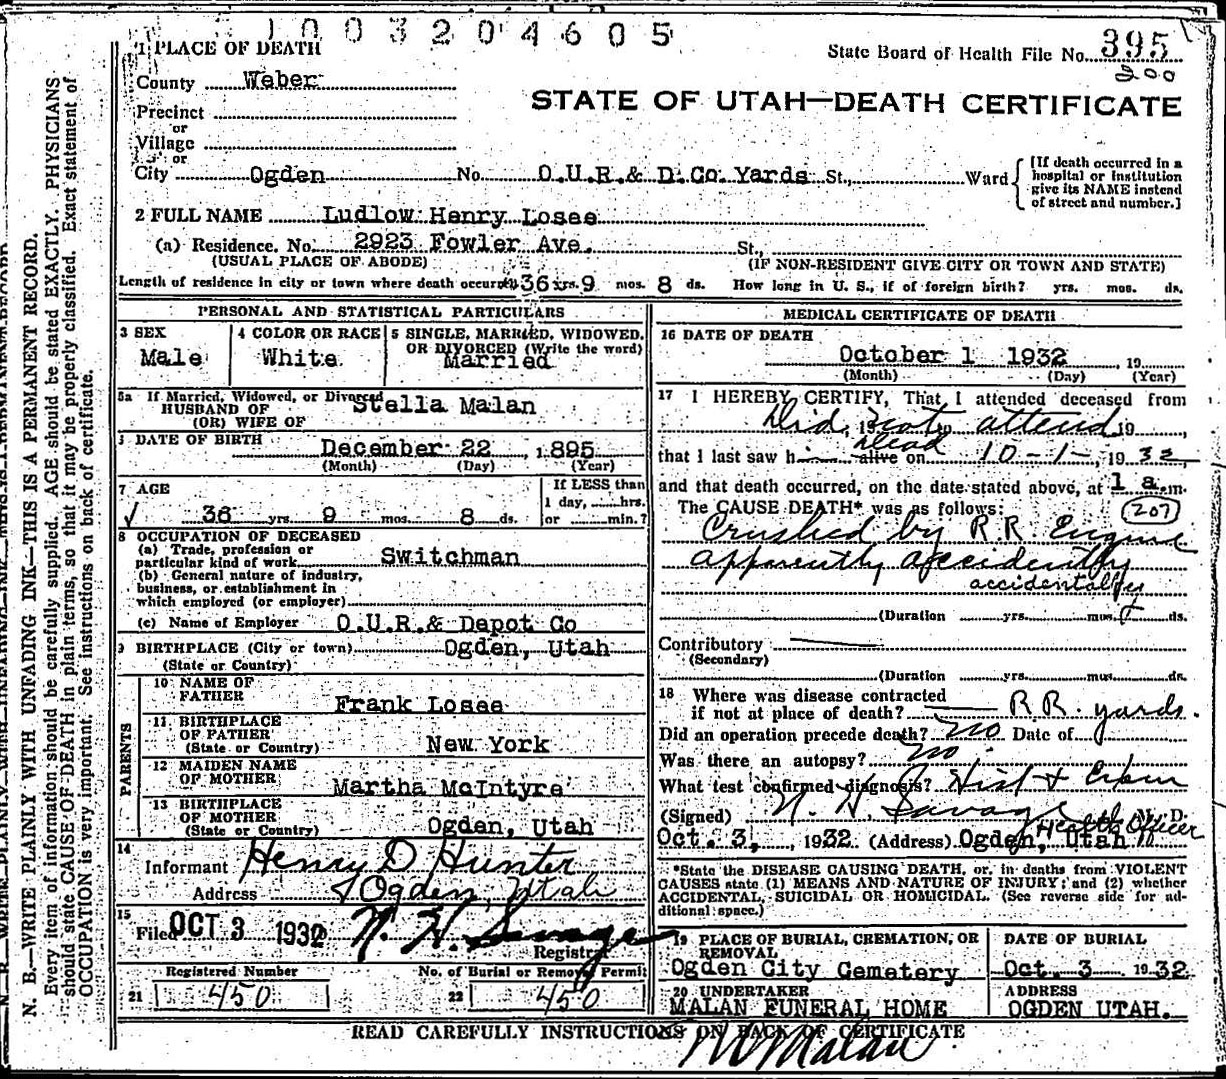 1003204605
1 PLACE OF DEATH
State Board of Health File No. 395
200
County Weber
STATE OF UTAH—DEATH CERTIFICATE
Precinct
or
Village
or
City Ogden No. O.U.R.& D.Co Yards St., Ward
[If death occurred in a hospital or institution give its NAME instead of street and number.]
2 FULL NAME Ludlow Henry Losee
(a) Residence. No. 2923 Fowler Ave. St.,
(USUAL PLACE OF ABODE) (IF NON-RESIDENT GIVE CITY OR TOWN AND STATE)
Length of residence in city or town where death occurred 36 yrs. 9 mos. 8 ds. How long in U. S., if of foreign birth? yrs. mos. ds.
PERSONAL AND STATISTICAL PARTICULARS
3 SEX
Male
4 COLOR OR RACE
White
5 SINGLE, MARRIED, WIDOWED, OR DIVORCED (Write the word)
Married
5a If Married, Widowed, or Divorced
HUSBAND OF
(OR) WIFE OF
Stella Malan
DATE OF BIRTH
December 22, 1895
(Month) (Day) (Year)
7 AGE
36 yrs. 9 mos. 8 ds.
If LESS than
1 day, hrs.
or min.?
8 OCCUPATION OF DECEASED
(a) Trade, profession or
particular kind of work Switchman
(b) General nature of industry,
business, or establishment in
which employed (or employer)
(c) Name of Employer O.U.R.& Depot Co
9 BIRTHPLACE (City or town) Ogden, Utah
(State or Country)
PARENTS
10 NAME OF
FATHER Frank Losee
11 BIRTHPLACE
OF FATHER
(State or Country) New York
12 MAIDEN NAME
OF MOTHER Martha McIntyre
13 BIRTHPLACE
OF MOTHER
(State or Country) Ogden, Utah
14
Informant Henry D Hunter
Address Ogden, Utah
15
Filed OCT 3 1932 N. H. Savage
Registrar
Registered Number
21 450
No. of Burial or Removal Permit
22 450
MEDICAL CERTIFICATE OF DEATH
16 DATE OF DEATH
October 1 1932, 19
(Month) (Day) (Year)
17 I HEREBY CERTIFY, That I attended deceased from
Did, 19 not, to attend 19
Dead
that I last saw h alive on 10-1-, 1932
and that death occurred, on the date stated above, at 1 a.m.
The CAUSE DEATH* was as follows: 207
Crushed by R.R. Engine
apparently accidently
accidentally
(Duration yrs. mos. ds.
Contributory
(Secondary)
(Duration yrs. mos. ds.
18 Where was disease contracted
if not at place of death? R.R. yards.
Did an operation precede death? no Date of
Was there an autopsy? no.
What test confirmed diagnosis? Hist +
(Signed) N. H. Savage, M. D.
Health Officer
Oct. 3, 1932 (Address) Ogden, Utah
*State the DISEASE CAUSING DEATH, or, in deaths from VIOLENT
CAUSES state (1) MEANS AND NATURE OF INJURY; and (2) whether
ACCIDENTAL, SUICIDAL OR HOMICIDAL. (See reverse side for ad-
ditional space.)
19 PLACE OF BURIAL, CREMATION, OR
REMOVAL
Ogden City Cemetery
DATE OF BURIAL
Oct. 3 1932
20 UNDERTAKER
MALAN FUNERAL HOME
ADDRESS
OGDEN UTAH.
READ CAREFULLY INSTRUCTIONS ON BACK OF CERTIFICATE
Malan
N. B.—WRITE PLAINLY WITH UNFADING INK—THIS IS A PERMANENT RECORD.
Every item of information should be carefully supplied. AGE should be stated EXACTLY. PHYSICIANS
should state CAUSE OF DEATH in plain terms, so that it may be properly classified. Exact statement of
OCCUPATION is very important. See instructions on back of certificate.